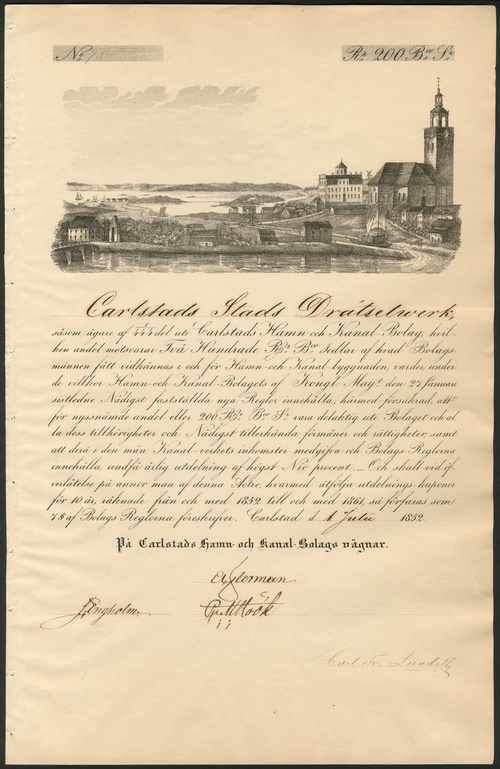 No
Rd. 200 Bco. Sr.
Carlstads Stads Drätselwerk,
såsom ägare af 1/444 del uti Carlstads Hamn och Kanal-Bolag, hvil-
ken andel motsvarar Två Hundrade Rdr. Bco. Sedlar af hvad Bolags-
männen fått vidkännas i och för Hamn och Kanal-byggnaden, varder, under
de villkor Hamn och Kanal-Bolagets af Kongl. Majt. den 27 Januari
sistledne Nådigst fastställda nya Regler innehålla, härmed försäkrad, att
för nyssnämde andel eller 200 Rdr. Bco. Sr. vara delaktig uti Bolaget och al
la dess tillhörigheter och Nådigst tillerkända förmåner och rättigheter, samt
att derå i den mån Kanal-verkets inkomster medgifva och Bolags Reglorna
innehålla, undfå årlig utdelning af högst Nio procent. — Och skall vid öf-
verlåtelse på annor man af denna Aktie, hvarmed åtfölja utdelnings-kuponer
för 10 år, räknade från och med 1852 till och med 1861, så förfaras som
7 § af Bolags Reglorna föreskrifver. Carlstad d. 1 Julii 1852.
På Carlstads Hamn- och Kanal-Bolags vägnar.